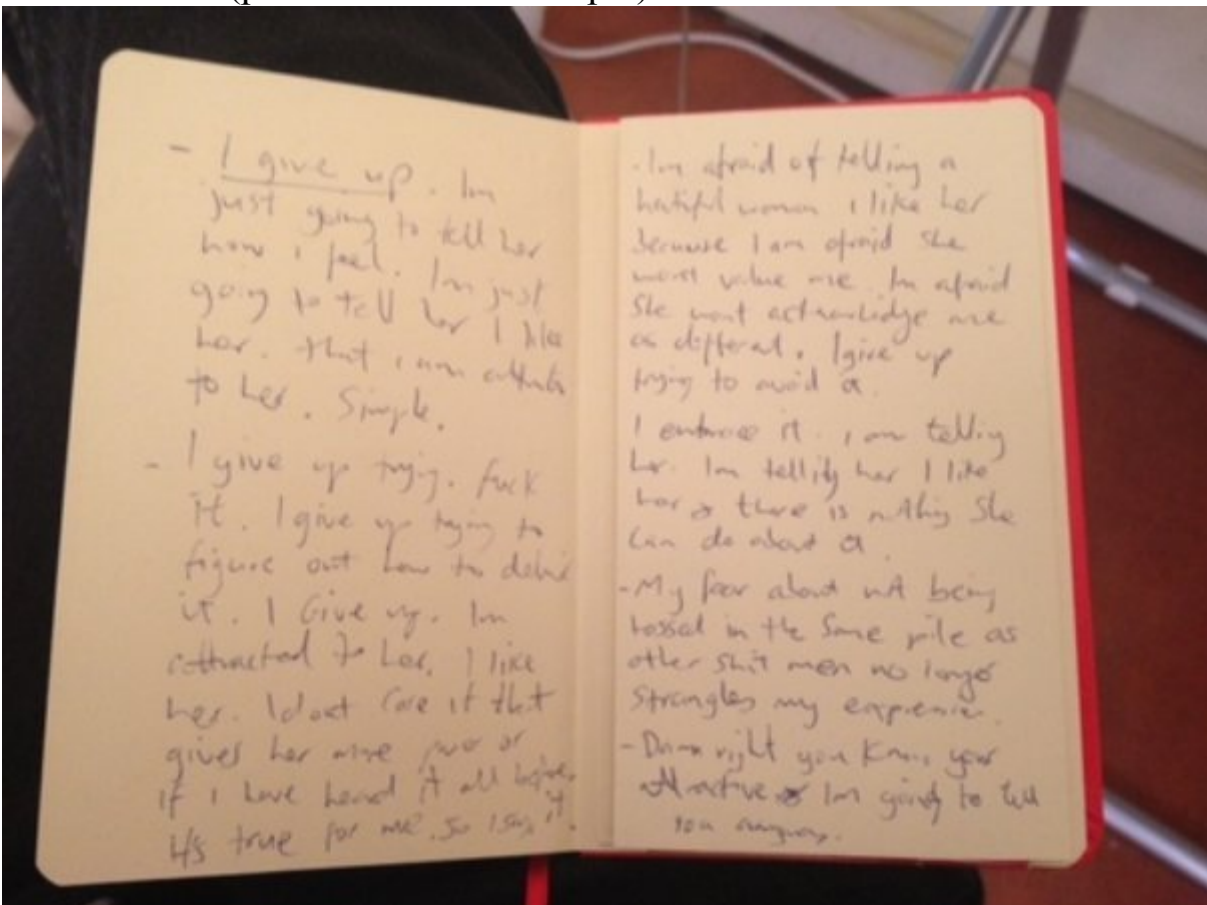 - I give up. Im
just going to tell her
how i feel. Im just
going to tell her I like
her. that i am
to her. Simple.
- I give up trying. fuck
it. I give up trying to
figure out how to
it. I Give up. Im
attracted to her. I like
her. I dont care if that
gives her more power or
if I have heard it all before.
It's true for me. So I say it.
- Im afraid of telling a
woman i like her
because I am afraid she
wont value me. Im afraid
She wont me
as . I give up
trying to avoid it.
I embrace it. i am telling
her. Im telling her I like
her & there is nothing She
can do about it.
- My fear about not being
tossed in the Same pile as
other shit men no longer
Strangles my
- Damn right you Know your
attractive & Im going to tell
you anyway.